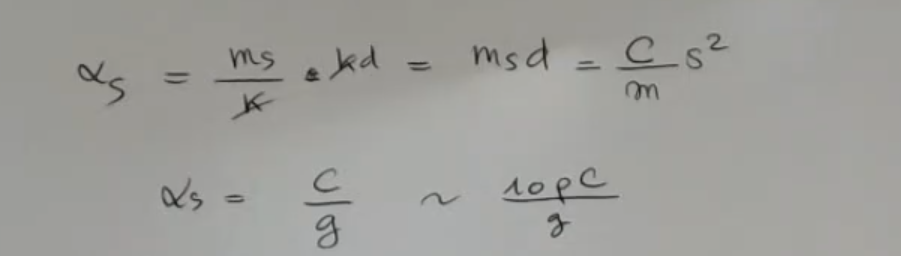 αs = ms/k · kd = msd = C/m s²
αs = C/g ~ 10pC/g